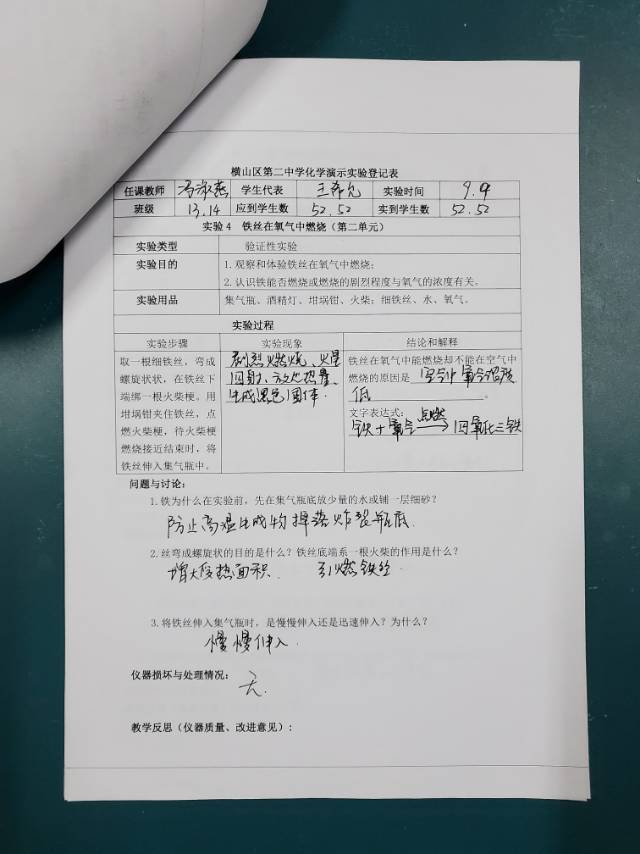 横山区第二中学化学演示实验登记表
任课教师 冯淑燕 学生代表 王希允 实验时间 9.9
班级 13.14 应到学生数 52.52 实到学生数 52.52
实验4 铁丝在氧气中燃烧（第二单元）
实验类型 验证性实验
实验目的 1.观察和体验铁丝在氧气中燃烧；
2.认识铁能否燃烧或燃烧的剧烈程度与氧气的浓度有关。
实验用品 集气瓶、酒精灯、坩埚钳、火柴；细铁丝、水、氧气。
实验过程
实验步骤 实验现象 结论和解释
取一根细铁丝，弯成
螺旋状状，在铁丝下
端绑一根火柴梗。用
坩埚钳夹住铁丝，点
燃火柴梗，待火柴梗
燃烧接近结束时，将
铁丝伸入集气瓶中。
剧烈燃烧、火星
四射、放出热量、
生成黑色固体.
铁丝在氧气中能燃烧却不能在空气中
燃烧的原因是 空气中氧气浓度
低 。
文字表达式：点燃
铁+氧气→四氧化三铁
问题与讨论：
1.铁为什么在实验前，先在集气瓶底放少量的水或铺一层细砂？
防止高温生成物掉落炸裂瓶底.
2.丝弯成螺旋状的目的是什么？铁丝底端系一根火柴的作用是什么？
增大受热面积. 引燃铁丝
3.将铁丝伸入集气瓶时，是慢慢伸入还是迅速伸入？为什么？
慢慢伸入.
仪器损坏与处理情况：
无.
教学反思（仪器质量、改进意见）：